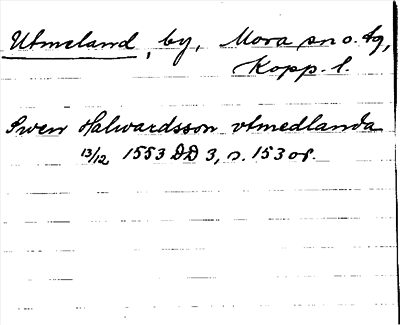 Utmeland, by, Mora sn o. tg,
Kopp. l.
Swen Halwardsson vtmedlanda
13/12 1553 DD 3, s. 153 or.